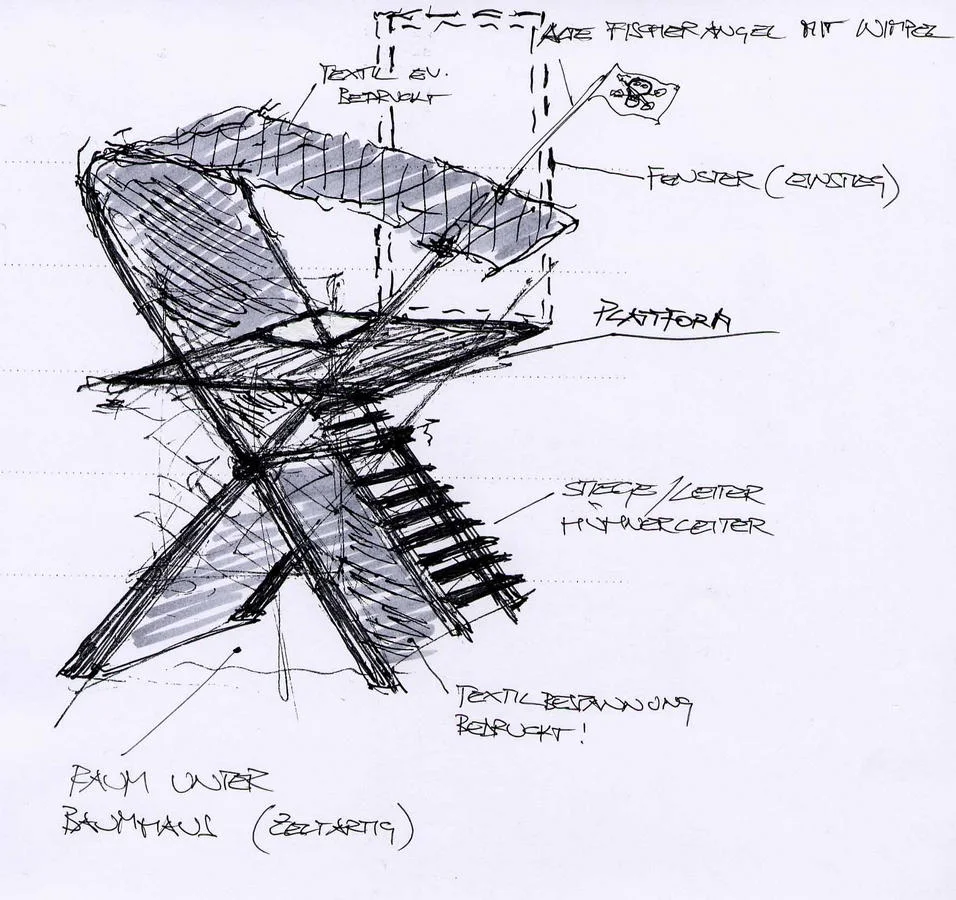 ALTE FISCHERANGEL MIT WIMPEL
TEXTIL EV.
BEDRUCKT
FENSTER (EINSTIEG)
PLATTFORM
STIEGE/LEITER
HÜHNERLEITER
TEXTILBESPANNUNG
BEDRUCKT!
RAUM UNTER
BAUMHAUS (ZELTARTIG)